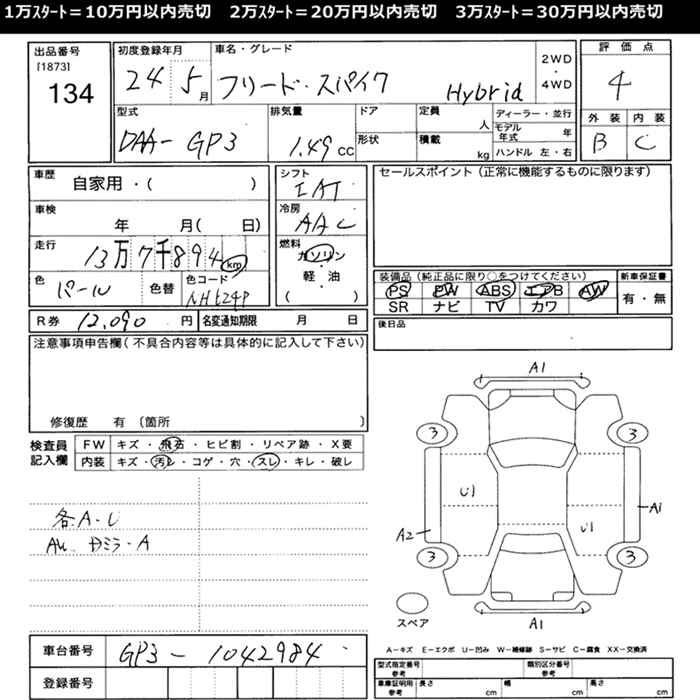 1万スタート=10万円以内売切　2万スタート=20万円以内売切　3万スタート=30万円以内売切
出品番号
[1873]
134
初度登録年月
24 5月
車名・グレード
フリード・スパイク Hybrid
2WD
・
4WD
評価点
4
外装 内装
B C
型式
DAA-GP3
排気量
1.49 cc
ドア
形状
定員
人
積載
kg
ディーラー・並行
モデル年式 年
ハンドル 左・右
車歴
自家用・( )
車検
年 月( 日)
走行
13万7千894 km
色
パール 色替
色コード
NH624P
シフト
IAT
冷房
AAC
燃料
ガソリン
・
軽・油
( )
セールスポイント(正常に機能するものに限ります)
装備品(純正品に限り○をつけてください)
PS PW ABS エアB AW
SR ナビ TV カワ
新車保証書
有・無
R券 12,090 円 名変通知期限 月 日
後日品
注意事項申告欄(不具合内容等は具体的に記入して下さい)
修復歴 有(箇所 )
検査員
記入欄
FW キズ・飛石・ヒビ割・リペア跡・X要
内装 キズ・汚レ・コゲ・穴・スレ・キレ・破レ
各A・U
AW Dミラ・A
A1
3 3
U1
A1
A2
U1
3 3
スペア
A1
A-キズ E-エクボ U-凹み W-補修跡 S-サビ C-腐食 XX-交換済
車台番号
GP3-1042984
登録番号
型式指定番号
参考
類別区分番号
参考
車庫証明用
参考
長さ cm 幅 cm 高さ cm